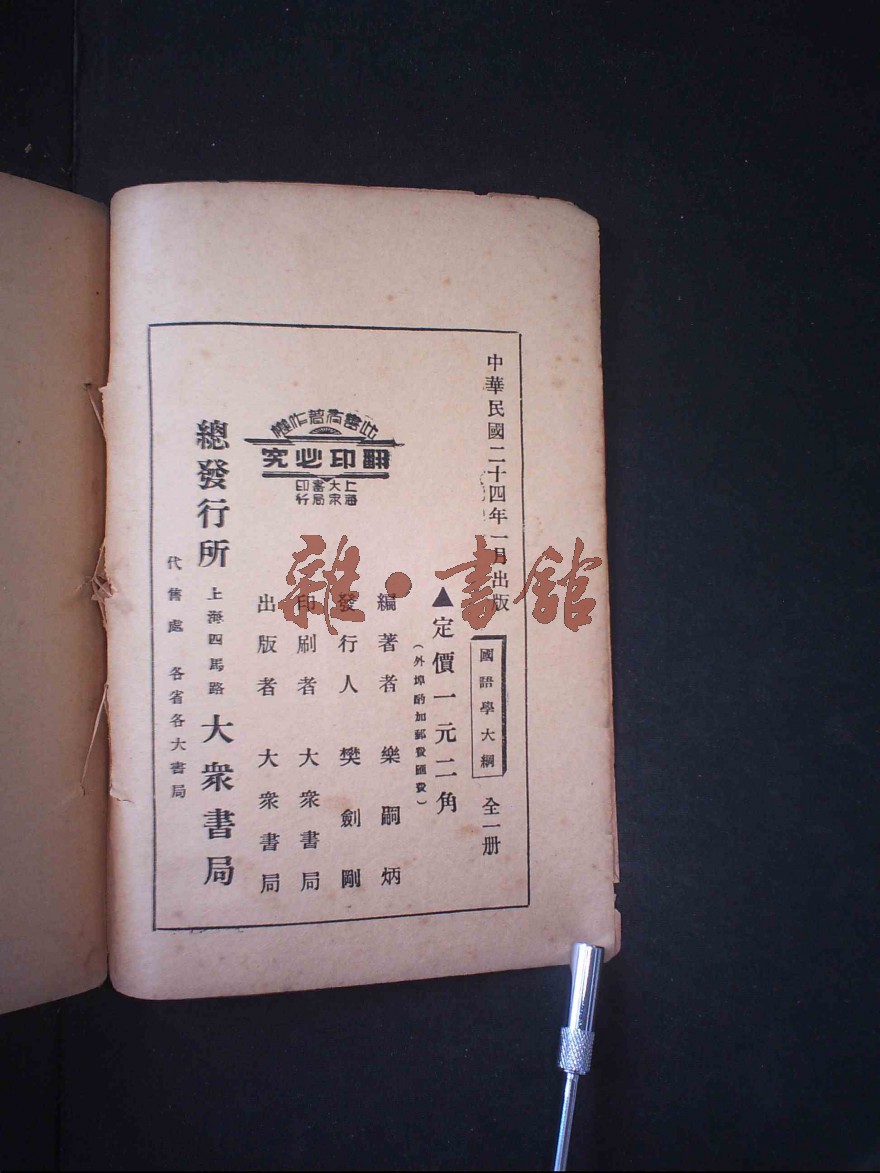 中華民國二十四年一月出版
國語學大綱
全一册
▲定價一元二角
(外埠酌加郵費匯費)
編著者 樂嗣炳
發行人 樊劍剛
印刷者 大衆書局
出版者 大衆書局
此書有著作權
翻印必究
上海
大衆
書局
印行
總發行所 上海四馬路 大衆書局
代售處 各省各大書局
雜·書館